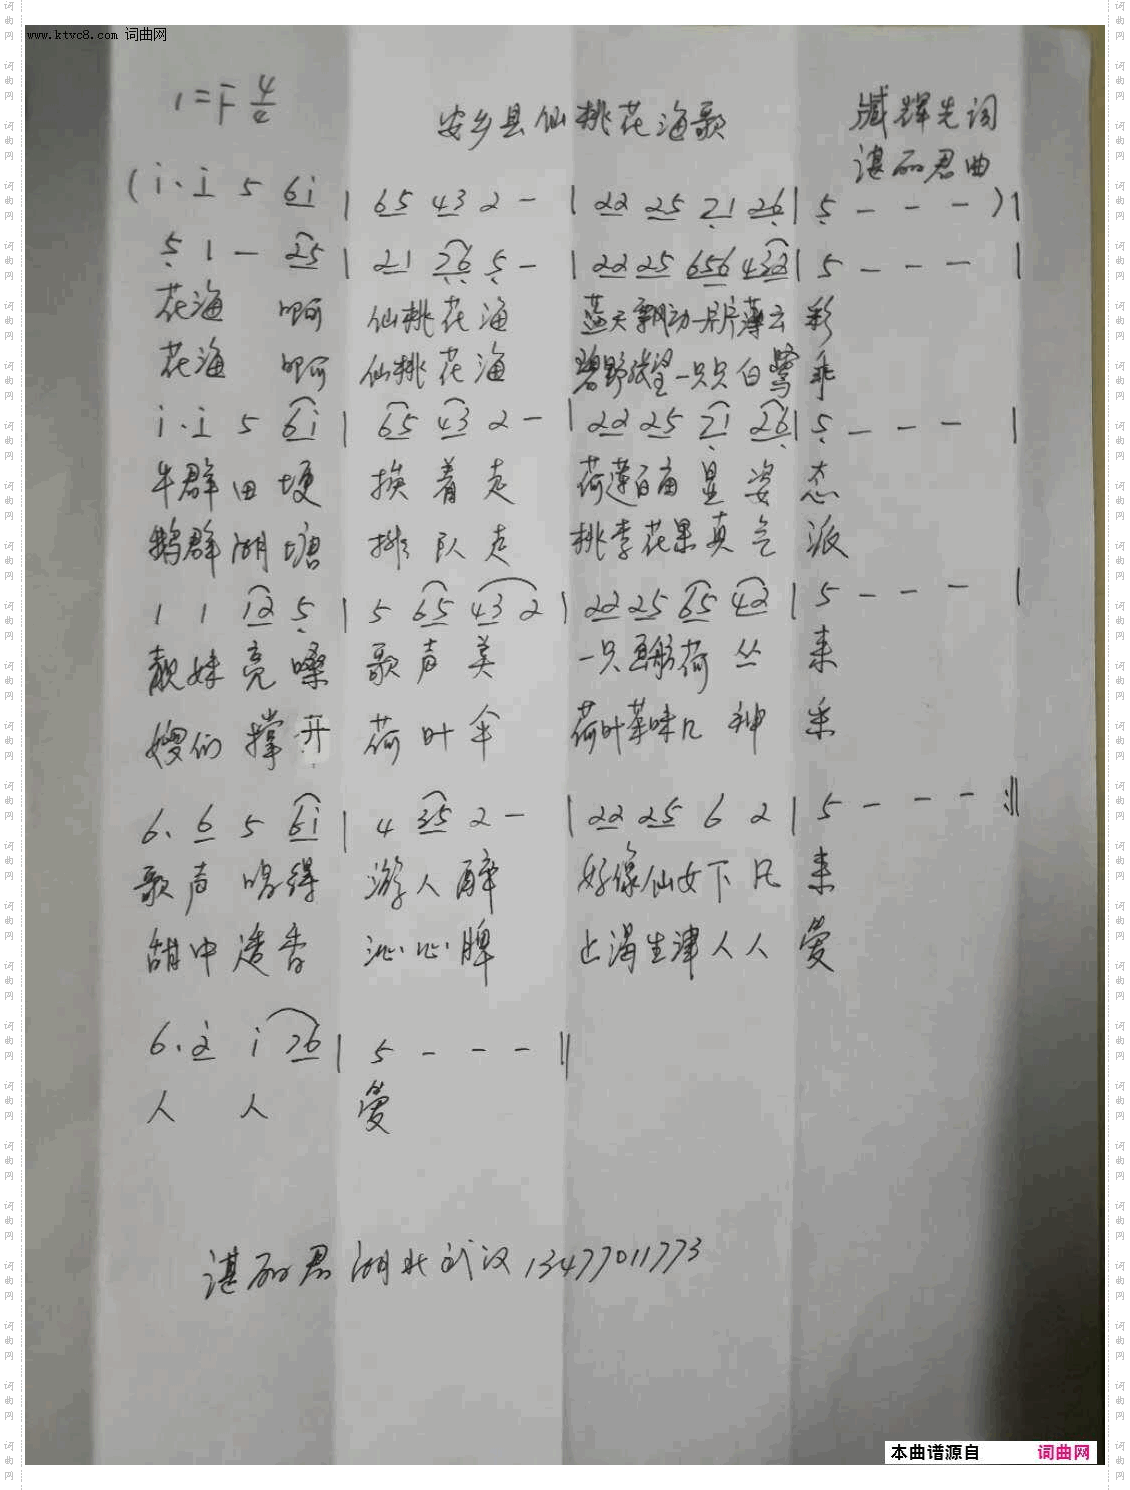 www.ktvc8.com 词曲网
1=F 4/4
安乡县仙桃花海歌
臧辉先词
谌丽君曲
(i· i 5 6i | 65 43 2 - | 22 25 21 26 | 5 - - - )|
5 1 - 25 | 21 26 5 - | 22 25 656 432 | 5 - - - |
花海 啊 仙桃花海 蓝天飘动一片片薄云彩
花海 啊 仙桃花海 碧野张望一只只白鹭乖
i· i 5 6i | 65 43 2 - | 22 25 21 26 | 5 - - - |
牛群田埂 挨着走 荷莲百亩显姿态
鹅群湖塘 排队走 桃李花果真气派
1 1 12 5 | 5 65 43 2 | 22 25 65 42 | 5 - - - |
靓妹亮嗓 歌声美 一只画舫荷丛来
嫂们撑开 荷叶伞 荷叶茶味儿神采
6· 6 5 6i | 4 35 2 - | 22 25 6 2 | 5 - - - :||
歌声唱得 游人醉 好像仙女下凡来
甜中透香 沁心脾 止渴生津人人爱
6· 2 i 76 | 5 - - - ||
人 人 爱
谌丽君 湖北武汉 13477011773
本曲谱源自 词曲网